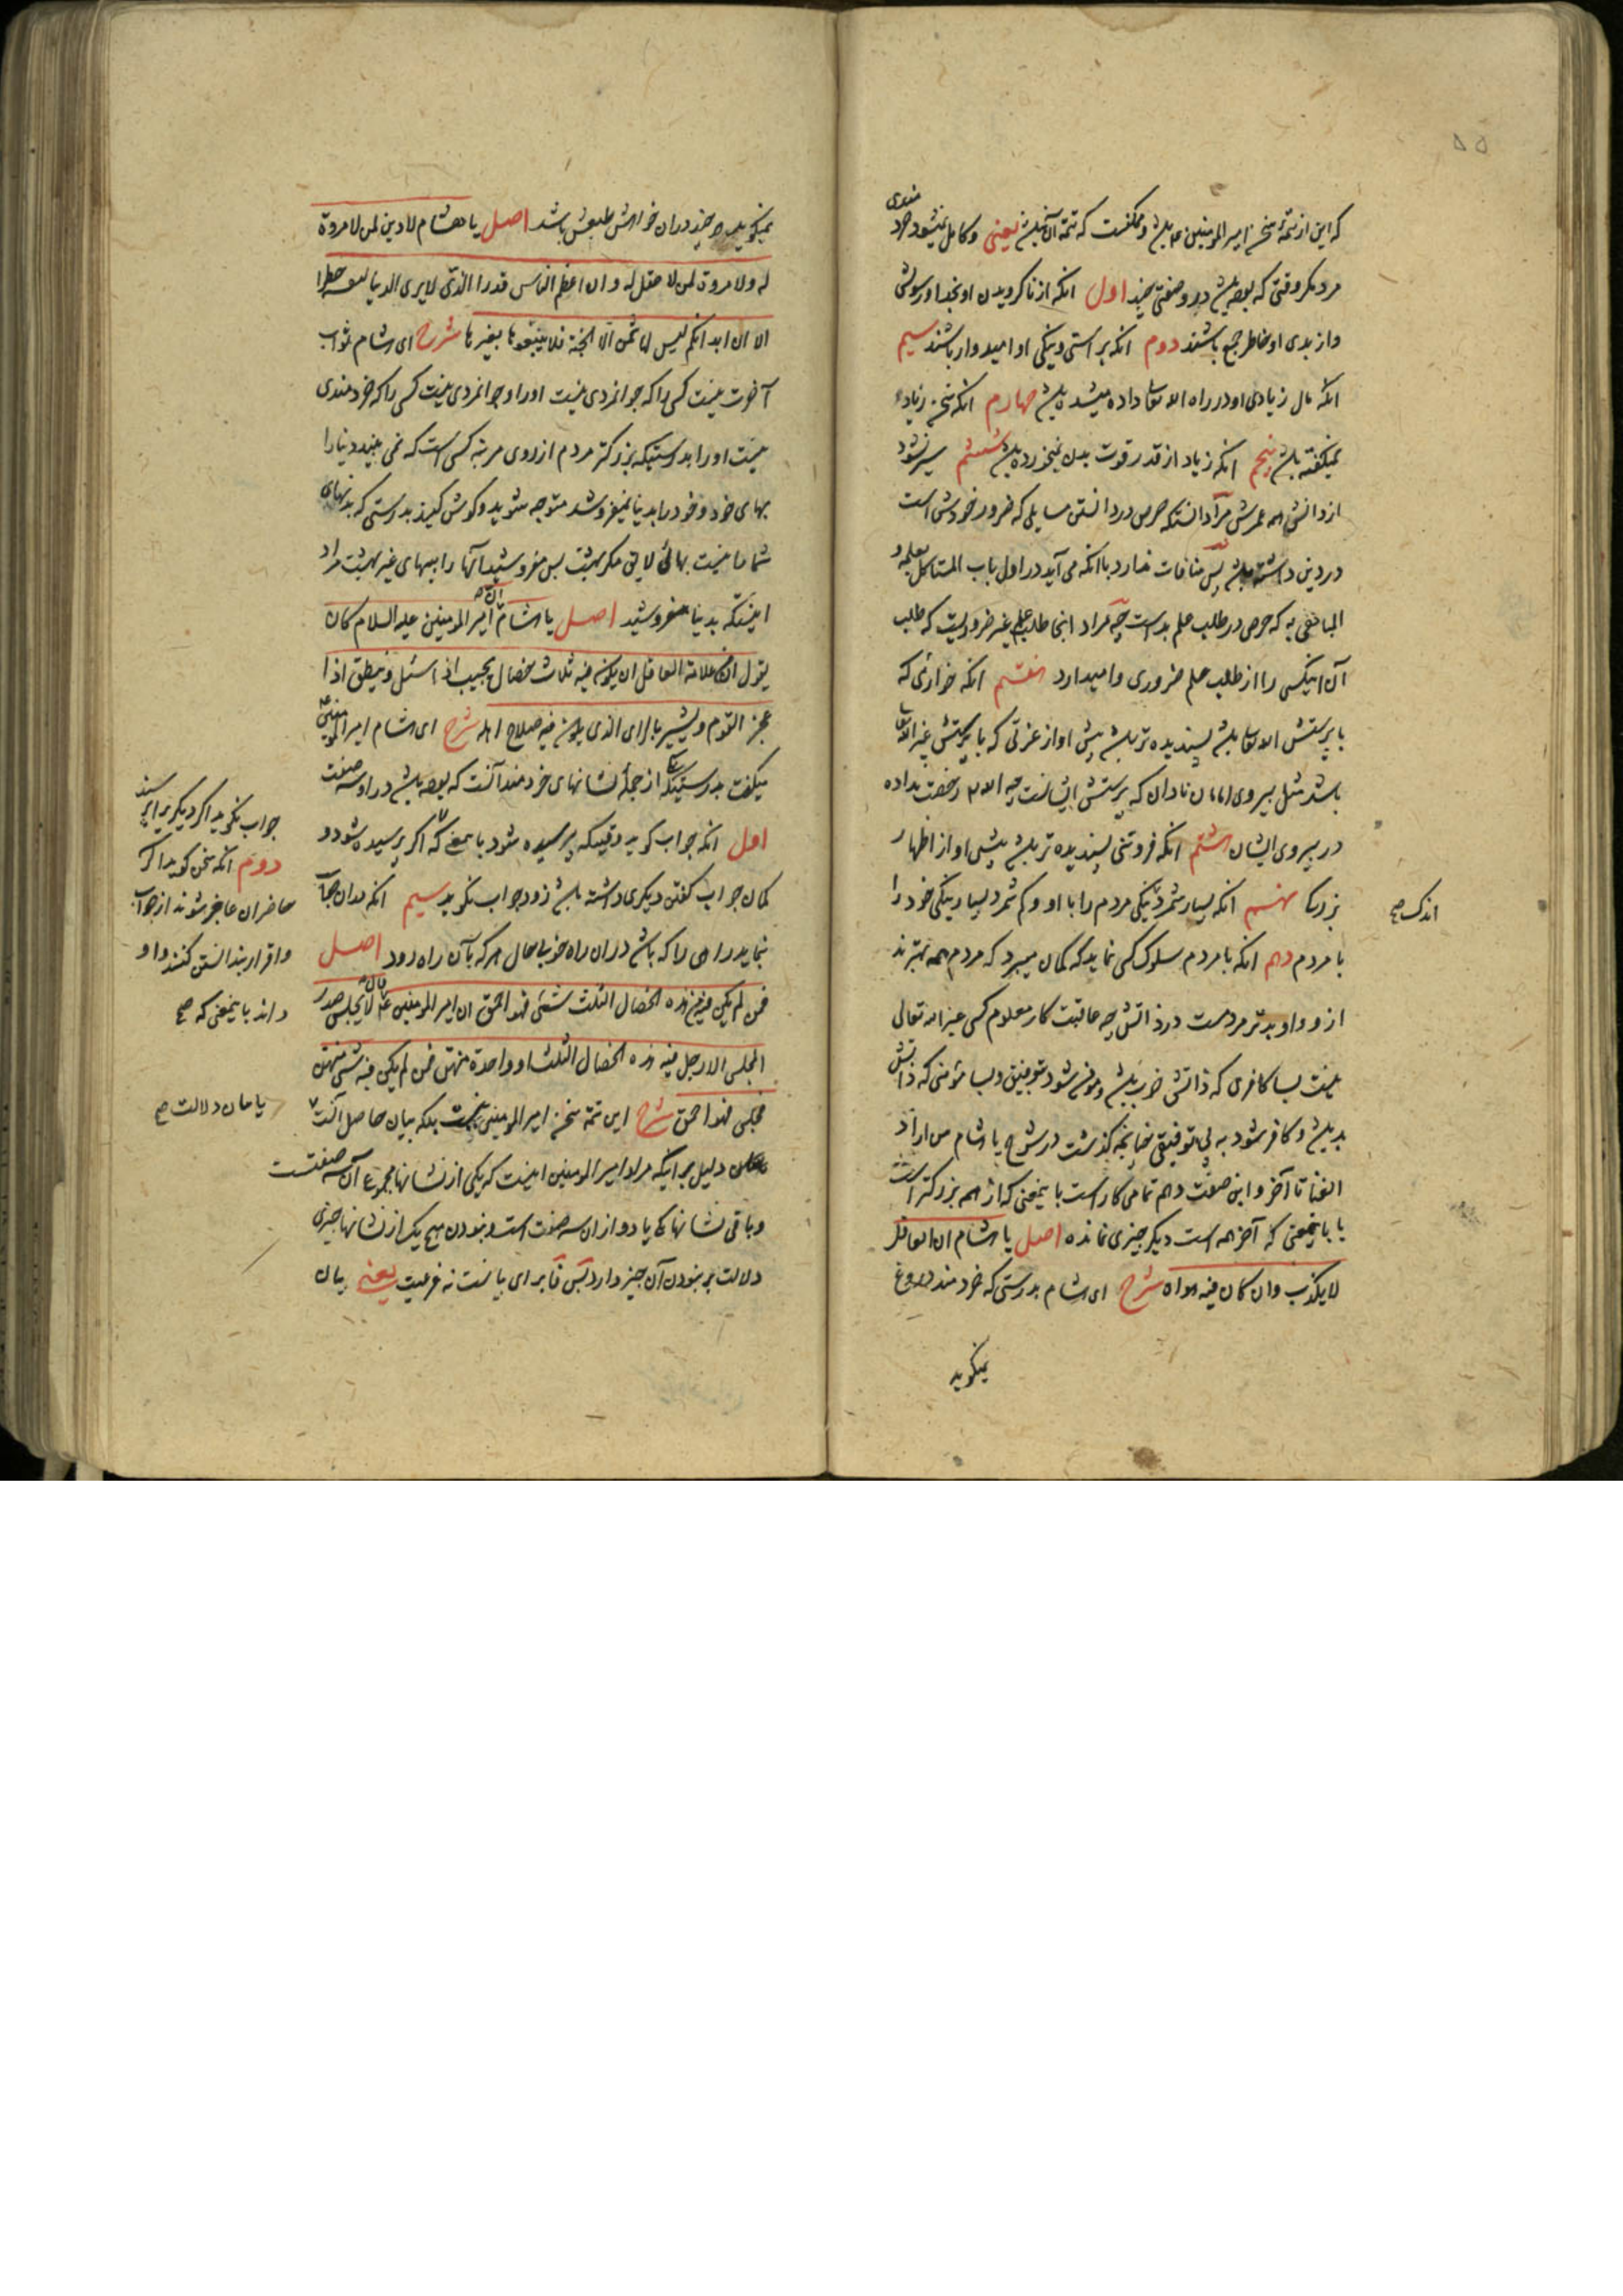 که این از تتمهٔ سخن امیر المومنین ۴ باشد و ممکنست که تتمه آن نباشد یعنی و کامل نمیشود خرد
مندی
مرد مگر وقتی که بوده باشد در و صفتی چند اول انکه از ناکرویدن او بخدا و رسولش
و از بدی او خاطر جمع باشند دوم انکه براستی و نیکی او امیدوار باشند سیم
انکه مال زیادی او در راه الله تعالی داده میشده باشد چهارم انکه سخن زیاده
نمیگفته باشد پنجم انکه زیاد از قدر قوت بدن نمیخورده باشد ششم سیر نشود
از دانش همه عمرش مراد انستکه حرص در دانستن مسایلی که ضرور خودش است
در دین داشته باشد پس منافات ندارد با انکه می آید در اول باب المستاکل بعلمه و
المباهی به که حرص در طلب علم بد است چه مراد اینجا طلب علم غیر ضروریست که طلب
آن اینکس را از طلب علم ضروری وامیدارد هفتم انکه خوارئی که
با پرستش الله تعالی باشد پسندیده تر باشد پیش او از عزتی که با پرستش غیر الله تعالی
باشد مثل پیروی امامان نادان که پرستش ایشانست چه الله تعالی رخصت نداده
در پیروی ایشان هشتم انکه فروتنی پسندیده تر باشد پیش او از اظهار
بزرگی نهم انکه بسیار شمرد نیکی مردم را با او و کم شمرد بسیار نیکی خود را
اندک صح
با مردم دهم انکه با مردم سلوک کسی نماید که کمان میبرد که مردم همه بهترند
از و و او بدتر مردمست در ذاتش چه عاقبت کار معلوم کسی غیر الله تعالی
نیست بسا کافری که ذاتش خوب باشد و مومن شود بتوفیق و بسا مؤمنی که ذاتش
بد باشد و کافر شود به بی توفیقی چنانچه گذشت در شرح یا هشام من اراد
الغنا تا آخر و این صفت دهم تمامی کار است بایمعنی که از همه بزرکتر است
یا بایمعنی که آخر همه است دیگر چیزی نمانده اصل یا هشام ان العاقل
لا یکذب و ان کان فیه هواه شرح ای هشام بدرستی که خردمند دروغ
نمیگوید
نمیگوید هر چند در ان خواهش طبعش باشد اصل یا هشام لا دین لمن لا مروة
له و لا مروة لمن لا عقل له و ان اعظم الناس قدرا الذی لا یری الدنیا لنفسه خطرا
الا ان ابدانکم لیس لها ثمن الا الجنة فلا تبیعوها بغیرها شرح ای هشام ثواب
آخرت نیست کسی را که جوانمردی نیست او را و جوانمردی نیست کسی را که خردمندی
نیست او را بدرستیکه بزرکتر مردم از روی مرتبه کسی است که نمی بیند دنیا را
بهای خود و خود را بدنیا نمیفروشد متوجه شوید و کوش کنید بدرستی که بدنهای
شما را نیست بهائی لایق مکر بهشت پس مفروشید آنها را ببهای غیر بهشت مراد
اینستکه بدنیا مفروشید اصل یا هشام ان امیر المومنین علیه السلام کان
یقول ان من علامة العاقل ان یکون فیه ثلاث خصال یجیب اذا سئل و ینطق اذا
عجز القوم و یشیر بالرای الذی یکون فیه صلاح اهله شرح ای هشام امیر المومنین ع
میکفت بدرستیکه از جملهٔ نشانهای خردمند آنست که بوده باشد در او سه صفت
اول انکه جواب کوید وقتیکه پرسیده شود بایمعنی که اکر پرسیده شود و
کمان جواب کفتن دیکری داشته باشد زود جواب نکوید سیم انکه بدان جماعت
جواب نکوید اکر دیکری را پرسند
دوم انکه سخن کوید اکر
حاضران عاجز شوند از جواب
و اقرار بندانستن کنند و او
داند بایمعنی که صح
نماید راهی را که باشد در ان راه خوبی حال هرکه بآن راه رود اصل
فمن لم یکن فیه من هذه الخصال الثلث شئی فهو احمق ان امیر المومنین ع قال لا یجلس صدر
المجلس الا رجل فیه هذه الخصال الثلث او واحدة منهن فمن لم یکن فیه شئی منهن
فجلس فهو احمق شرح این تتمه سخن امیر المومنین نیست بلکه بیان حاصل آنست
یا همان دلالت صح
دلیل بر اینکه مراد امیر المومنین اینست که یکی از نشانها مجموع آن سه صفتست
و باقی نشانها یکی یا دو از ان سه صفت است و نبودن هیچ یک از نشانها چیزی
دلالت بر نبودن آن چیز دارد پس فا برای بیانست نه فرعیت یعنی بیان